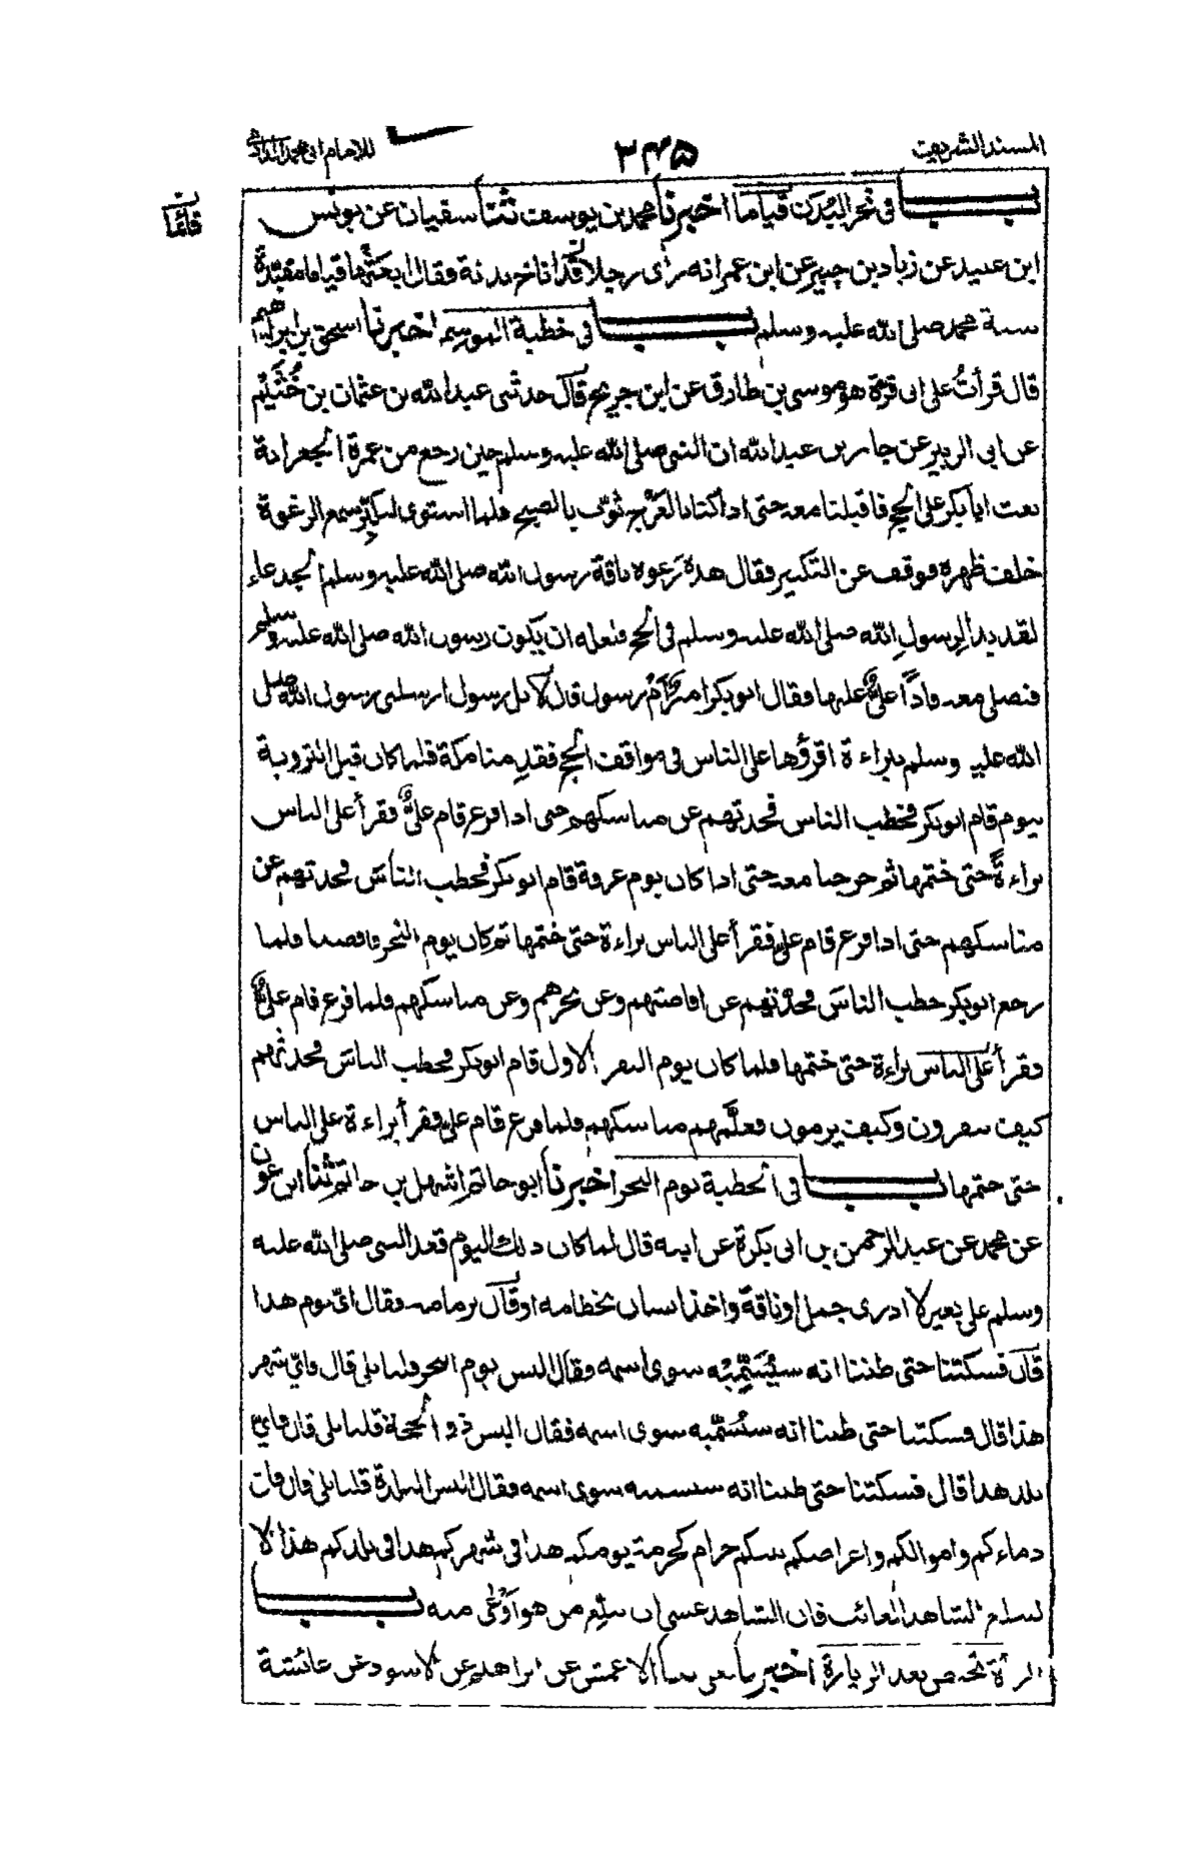 المسند الشريف
٣٤٥
للامام ابى محمد الدارمى
باب فى نحر البُدن قياما اخبرنا محمد بن يوسف ثنا سفيان عن يونس
قائما
ابن عبيد عن زياد بن جبير عن ابن عمر انه رأى رجلا قد اناخ بدنة فقال ابعثها قياما مقيدة
سنة محمد صلى الله عليه وسلم باب فى خطبة الموسم اخبرنا اسحق بن ابراهيم
قال قرأتُ على ابى قرة هو موسى بن طارق عن ابن جريج قال حدثنى عبد الله بن عثمان بن خُثَيْم
عن ابى الزبير عن جابر بن عبد الله ان النبى صلى الله عليه وسلم حين رجع من عمرة الجعرانة
بعث ابا بكر على الحج فاقبلنا معه حتى اذا كنا بالعَرْج ثوّب بالصبح فلما استوى ليكبّر سمع الرغوة
خلف ظهره فوقف عن التكبير فقال هذه رَغوة ناقة رسول الله صلى الله عليه وسلم الجدعاء
لقد بدا لرسولِ الله صلى الله عليه وسلم فى الحج فلعله ان يكون رسول الله صلى الله عليه وسلم
فنصلى معه فاذا علىٌّ عليها فقال ابو بكر اميرٌ أَمْ رسول قال لا بل رسول ارسلنى رسول الله صلى
الله عليه وسلم ببراءة اقرؤها على الناس فى مواقف الحج فقدِمنا مكة فلما كان قبل التروية
بيوم قام ابو بكر فخطب الناس فحدثهم عن مناسكهم حتى اذا فرغ قام علىٌّ فقرأ على الناس
براءةً حتى ختمها ثم خرجنا معه حتى اذا كان يوم عرفة قام ابو بكر فخطب الناسَ فحدثهم عن
مناسكهم حتى اذا فرغ قام علىٌّ فقرأ على الناس براءة حتى ختمها ثم كان يوم النحر فافضنا فلما
رجع ابو بكر خطب الناسَ فحدّثهم عن افاضتهم وعن نحرهم وعن مناسكهم فلما فرغ قام علىٌّ
فقرأ على الناس براءة حتى ختمها فلما كان يوم النفر الاول قام ابو بكر فخطب الناسَ فحدثهم
كيف ينفرون وكيف يرمون فعلّمهم مناسكهم فلما فرغ قام علىٌّ فقرأ براءة على الناس
حتى ختمها باب فى الخطبة يوم النحر اخبرنا ابو حاتم اشهل بن حاتم ثنا ابن عون
عن محمد عن عبد الرحمن بن ابى بكرة عن ابيه قال لما كان ذلك اليوم قعد النبى صلى الله عليه
وسلم على بعير لا ادرى جمل او ناقة واخذ انسان بخطامه او قال بزمامه فقال اىّ يوم هذا
قال فسكتنا حتى ظننا انه سيُسَمِّيْه سوى اسمه فقال اليس يوم النحر قلنا بلى قال فاىّ شهر
هذا قال فسكتنا حتى ظننا انه سيُسَمِّيه سوى اسمه فقال اليس ذو الحجة قلنا بلى قال فاىّ
بلد هذا قال فسكتنا حتى ظننا انه سيسميه سوى اسمه فقال اليس البلدة قلنا بلى قال فان
دماءكم واموالكم واعراضكم بينكم حرام كحرمة يومكم هذا فى شهركم هذا فى بلدكم هذا الا
ليبلغ الشاهد الغائب فان الشاهد عسى ان يبلّغ من هو اَوْعٰى منه باب
المرأة تحيض بعد الزيارة اخبرنا يعلى ثنا الاعمش عن ابراهيم عن الاسود عن عائشة